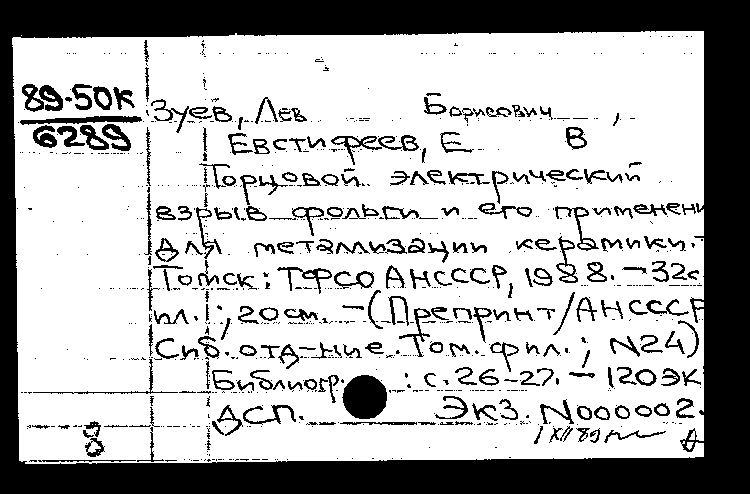 89-50К
6289
Зуев, Лев Борисович,
Евстифеев, Е В
Торцовой электрический
взрыв фольги и его применени
для металлизации керамики.-
Томск: ТФСО АНСССР, 1988. - 32с
ил.; 20см. - (Препринт/АНСССР
Сиб. отд-ние. Том. фил.; N24)
Библиогр.: с. 26-27. - 120эк
ДСП. Экз. N000002.
1 XII 89
8